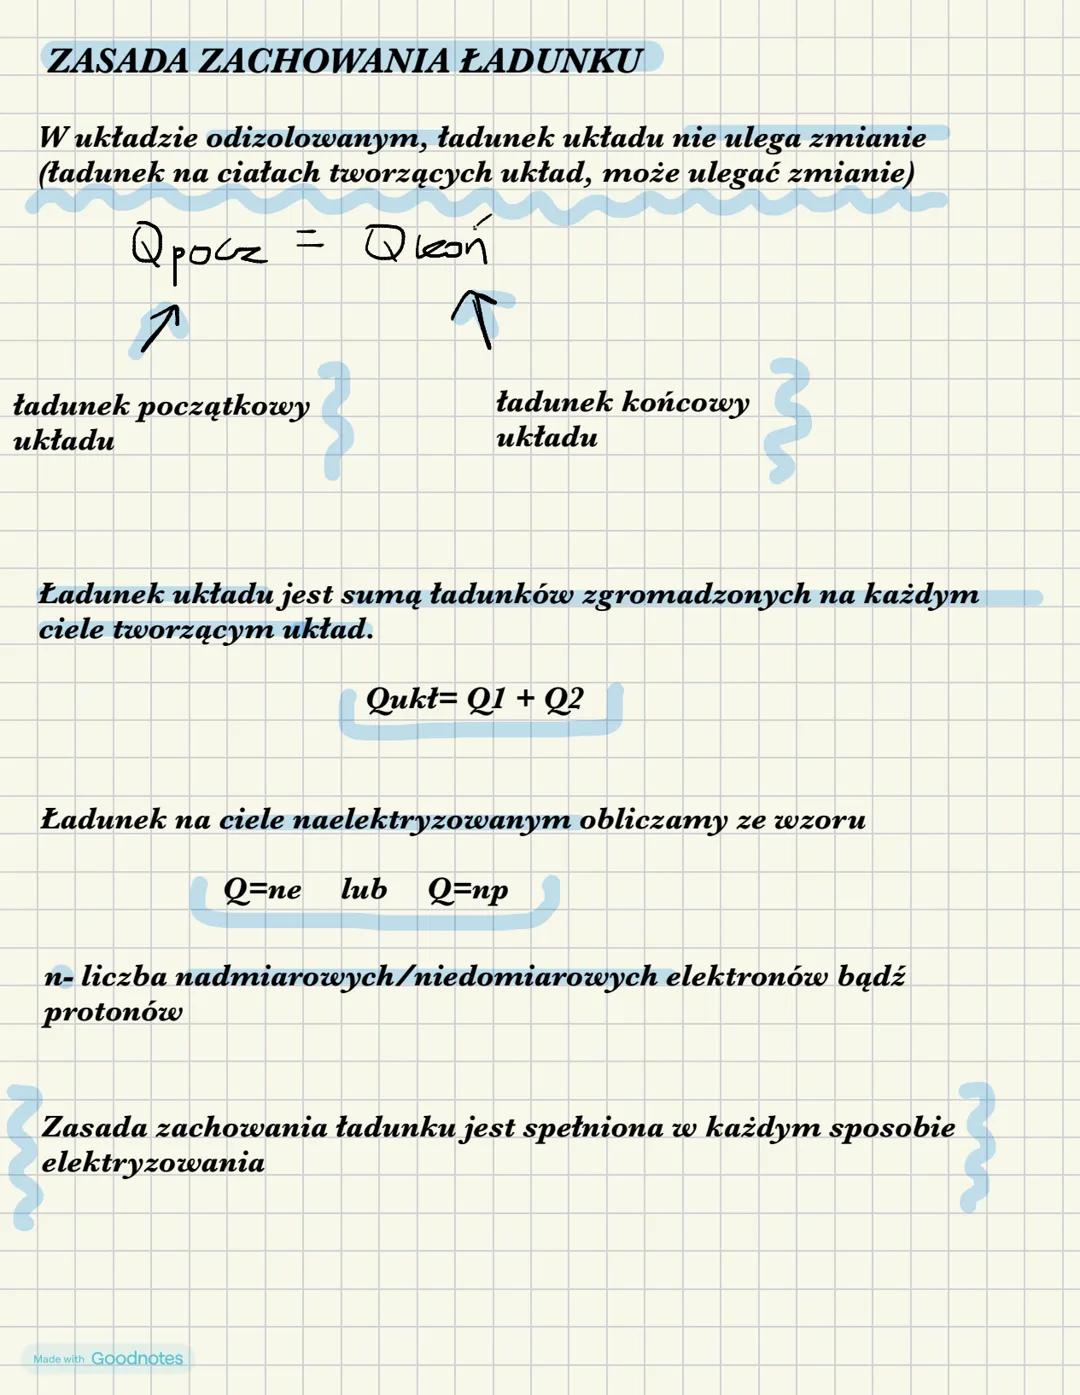 ZASADA ZACHOWANIA ŁADUNKU
W układzie odizolowanym, ładunek układu nie ulega zmianie
(ładunek na ciałach tworzących układ, może ulegać zmianie)
Qpocz = Qkoń
ładunek początkowy układu
ładunek końcowy układu
Ładunek układu jest sumą ładunków zgromadzonych na każdym
ciele tworzącym układ.
Qukł= Q1 + Q2
Ładunek na ciele naelektryzowanym obliczamy ze wzoru
Q=ne lub Q=np
n- liczba nadmiarowych/niedomiarowych elektronów bądź
protonów
Zasada zachowania ładunku jest spełniona w każdym sposobie
elektryzowania
Made with Goodnotes